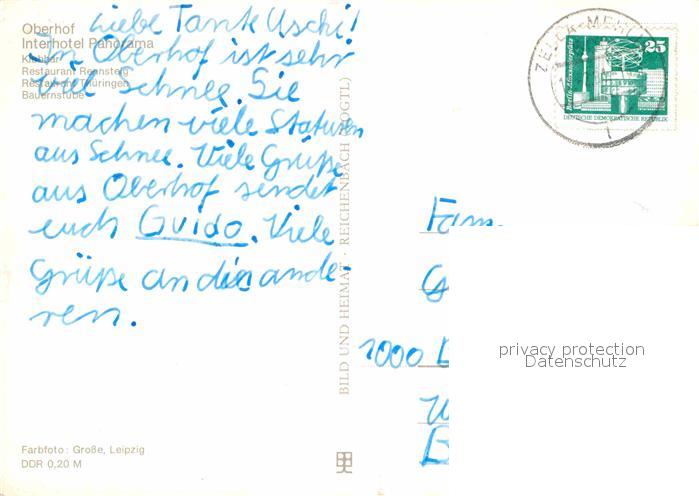 Oberhof
Interhotel Panorama
Klubbar
Restaurant Rennsteig
Restaurant Thüringen
Bauernstube
Liebe Tante Uschi!
In Oberhof ist sehr
viel Schnee. Sie
machen viele Statuen
aus Schnee. Viele Grüße
aus Oberhof sendet
euch Guido. Viele
Grüße an die ande-
ren.
Farbfoto: Große, Leipzig
DDR 0,20 M
BILD UND HEIMAT · REICHENBACH (VOGTL)
ZELLA-MEHLIS
1
25
Berlin-Alexanderplatz
DEUTSCHE DEMOKRATISCHE REPUBLIK
Fam.
1000
privacy protection
Datenschutz